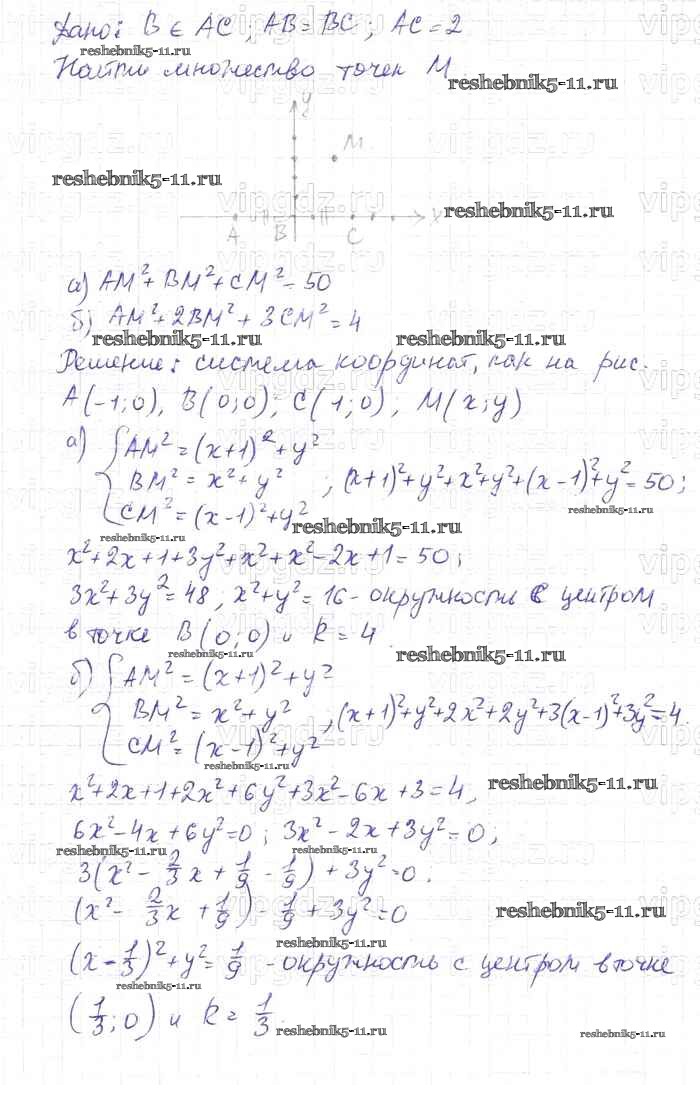 Дано: B ∈ AC; AB = BC; AC = 2
reshebnik5-11.ru
Найти множество точек M
reshebnik5-11.ru
y
M
reshebnik5-11.ru
reshebnik5-11.ru
A B C x
а) AM²+BM²+CM²=50
б) AM²+2BM²+3CM²=4
reshebnik5-11.ru reshebnik5-11.ru
Решение: система координат, как на рис.
A(-1;0), B(0;0), C(1;0), M(x;y)
а) { AM²=(x+1)²+y²
BM²=x²+y² ; (x+1)²+y²+x²+y²+(x-1)²+y²=50;
CM²=(x-1)²+y²
reshebnik5-11.ru
reshebnik5-11.ru
x²+2x+1+3y²+x²+x²-2x+1=50;
3x²+3y²=48; x²+y²=16 - окружность с центром
в точке B(0;0) и R=4
reshebnik5-11.ru reshebnik5-11.ru
б) { AM²=(x+1)²+y²
BM²=x²+y² ; (x+1)²+y²+2x²+2y²+3(x-1)²+3y²=4.
CM²=(x-1)²+y²
reshebnik5-11.ru
x²+2x+1+2x²+6y²+3x²-6x+3=4,
reshebnik5-11.ru
6x²-4x+6y²=0; 3x²-2x+3y²=0;
reshebnik5-11.ru reshebnik5-11.ru
3(x²-2/3x+1/9-1/9)+3y²=0.
(x²-2/3x+1/9)-1/9+3y²=0
reshebnik5-11.ru
reshebnik5-11.ru
(x-1/3)²+y²=1/9 - окружность с центром в точке
reshebnik5-11.ru
(1/3;0) и R=1/3
reshebnik5-11.ru reshebnik5-11.ru